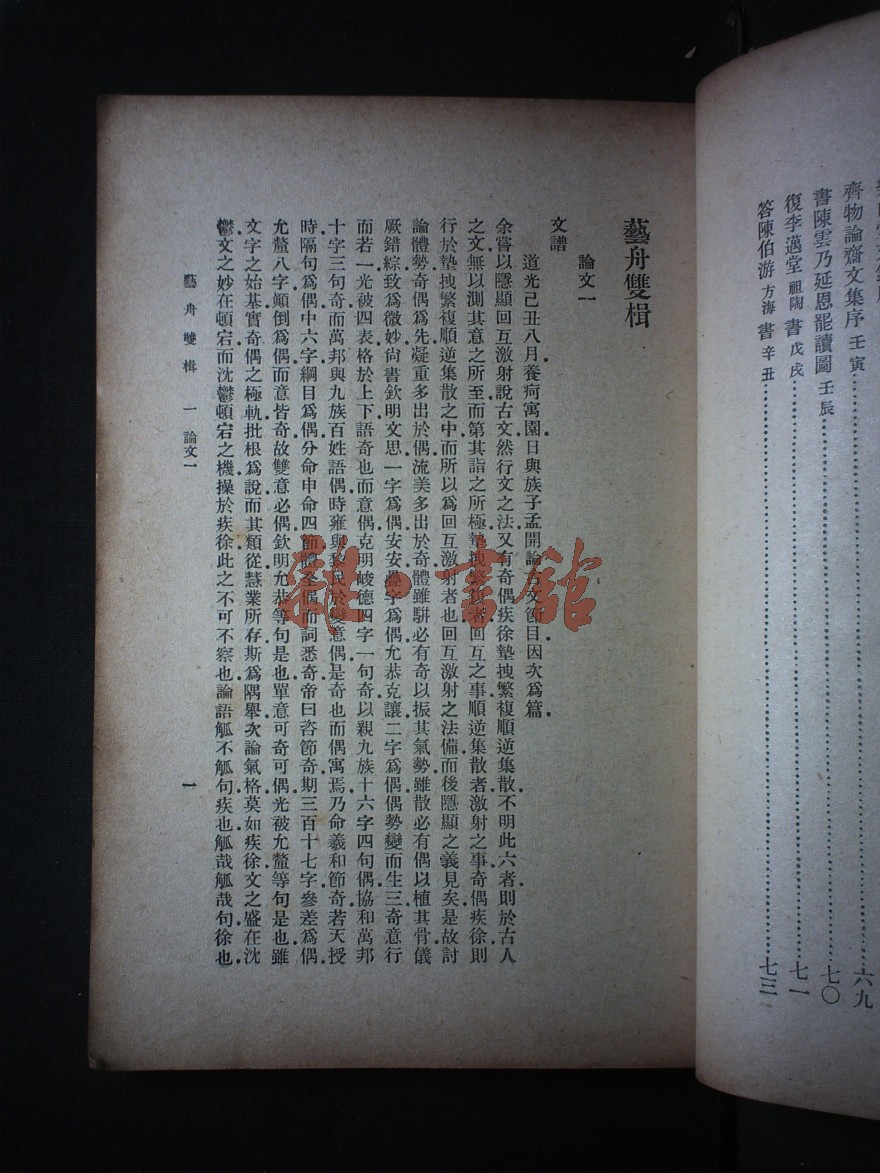 齊物論齋文集序 壬寅……六九
書陳雲乃延恩罷讀圖 壬辰……七〇
復李邁堂 祖陶 書 戊戌……七一
答陳伯游 方海 書 辛丑……七三
藝舟雙楫
論文一
文譜
道光己丑八月養疴寓園日與族子孟開論古文節目因次爲篇
余嘗以隱顯回互激射說古文然行文之法又有奇偶疾徐墊拽繁複順逆集散不明此六者則於古人
之文無以測其意之所至而第其詣之所極墊拽繁複者回互之事順逆集散者激射之事奇偶疾徐則
行於墊拽繁複順逆集散之中而所以爲回互激射者也回互激射之法備而後隱顯之義見矣是故討
論體勢奇偶爲先凝重多出於偶流美多出於奇體雖駢必有奇以振其氣勢雖散必有偶以植其骨儀
厥錯綜致爲微妙尙書欽明文思一字爲偶安安疊字爲偶允恭克讓二字爲偶偶勢變而生三奇意行
而若一光被四表格於上下語奇也而意偶克明峻德四字一句奇以親九族十六字四句偶協和萬邦
十字三句奇而萬邦與九族百姓語偶時雍與黎民於變意偶是奇也而偶寓焉乃命羲和節奇若天授
時隔句爲偶中六字綱目爲偶分命申命四節體全偶而詞悉奇帝曰咨節奇期三百十七字參差爲偶
允釐八字顚倒爲偶而意皆奇故雙意必偶欽明允恭等句是也單意可奇可偶光被允釐等句是也雖
文字之始基實奇偶之極軌批根爲說而其類從慧業所存斯爲隅舉次論氣格莫如疾徐文之盛在沈
鬱文之妙在頓宕而沈鬱頓宕之機操於疾徐此之不可不察也論語觚不觚句疾也觚哉觚哉句徐也
藝舟雙楫 一 論文一
一
雜·書館